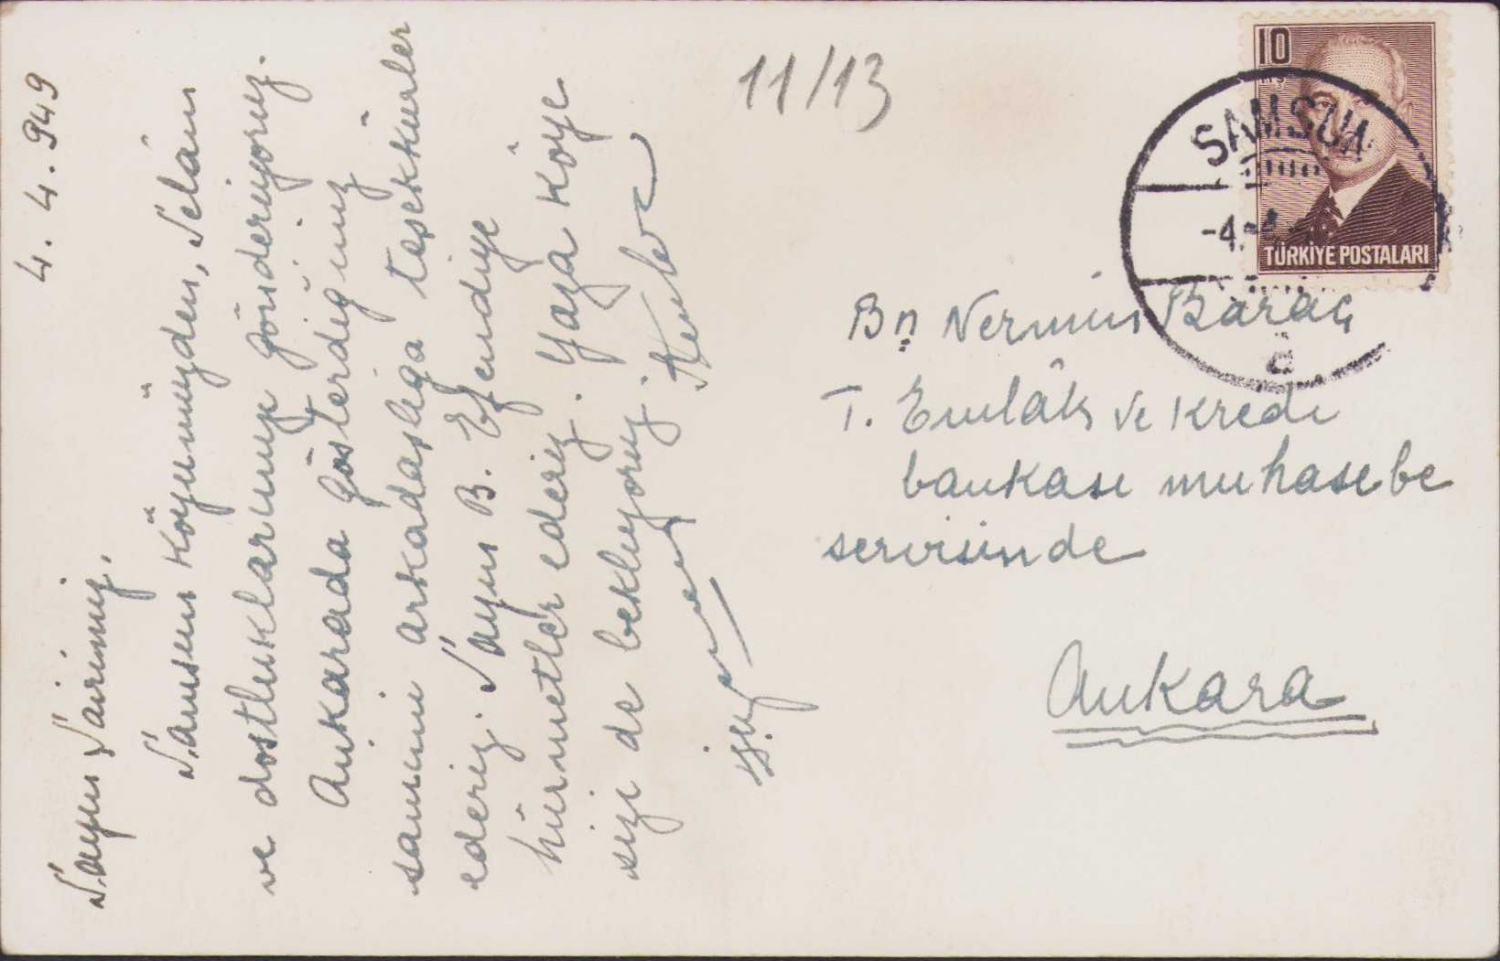 4. 4. 949
Sayın Şairimiz,
Samsun Köyümüzden, Selâm
ve dostluklarımızı gönderiyoruz.
Ankarada gösterdiğiniz
samimi arkadaşlığa teşekkürler
ederiz. Sayın B. Efendiye
hürmetler ederiz. Yaza Köye
sizi de bekliyoruz.
11/13
10
SAMSUN
-4.
TÜRKİYE POSTALARI
a
Bn Nermin Baraç
T. Emlâk ve Kredi
bankası muhasebe
servisinde
Ankara